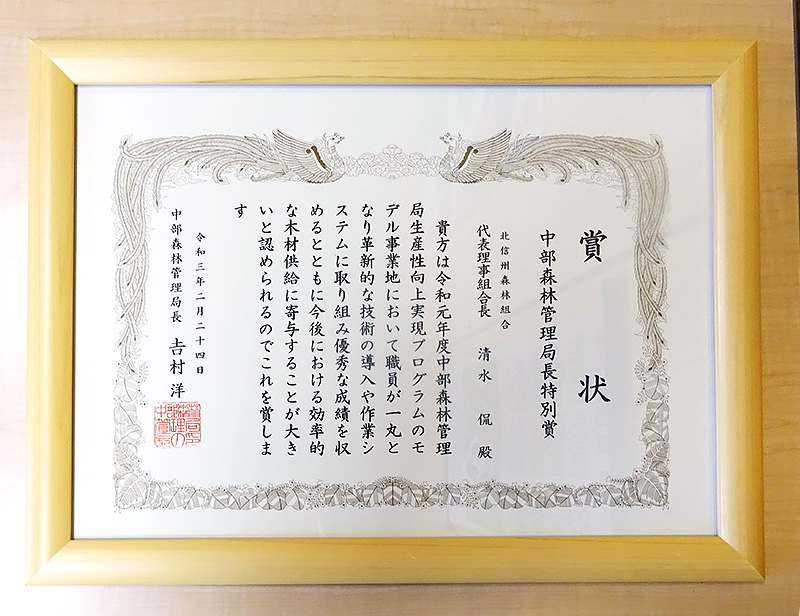 賞状
中部森林管理局長特別賞
北信州森林組合
代表理事組合長 清水 侃 殿
貴方は令和元年度中部森林管理
局生産性向上実現プログラムのモ
デル事業地において職員が一丸と
なり革新的な技術の導入や作業シ
ステムに取り組み優秀な成績を収
めるとともに今後における効率的
な木材供給に寄与することが大き
いと認められるのでこれを賞しま
す
令和三年二月二十四日
中部森林管理局長 𠮷村 洋